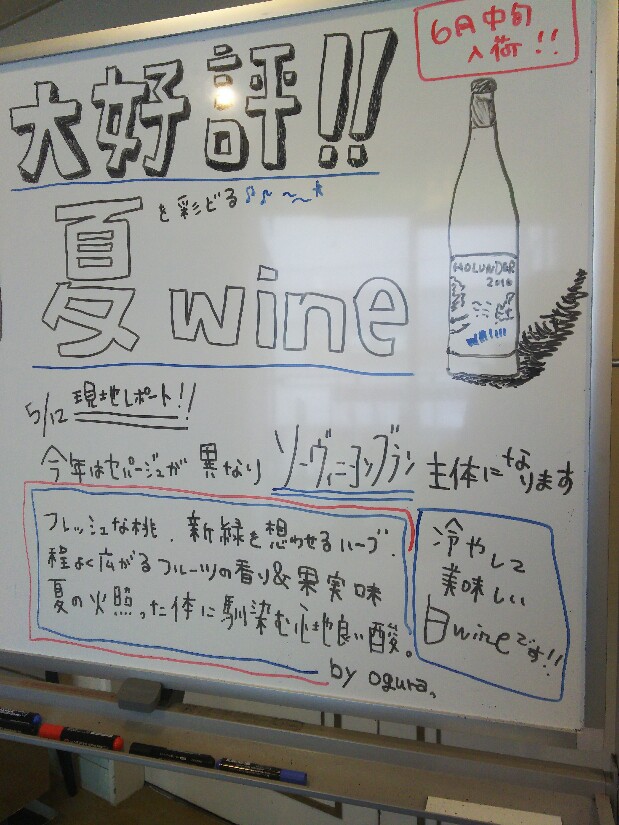 6月中旬
入荷!!
大好評!!
夏を彩どる
wine
HOLUNDER
2018
5/12 現地レポート!!
今年はセパージュが異なり ソーヴィニヨンブラン 主体になります
フレッシュな桃、新緑を想わせるハーブ、
程よく広がるフルーツの香り&果実味
夏の火照った体に馴染む心地良い酸。
by ogura.
冷やして
美味しい
白wineです!!